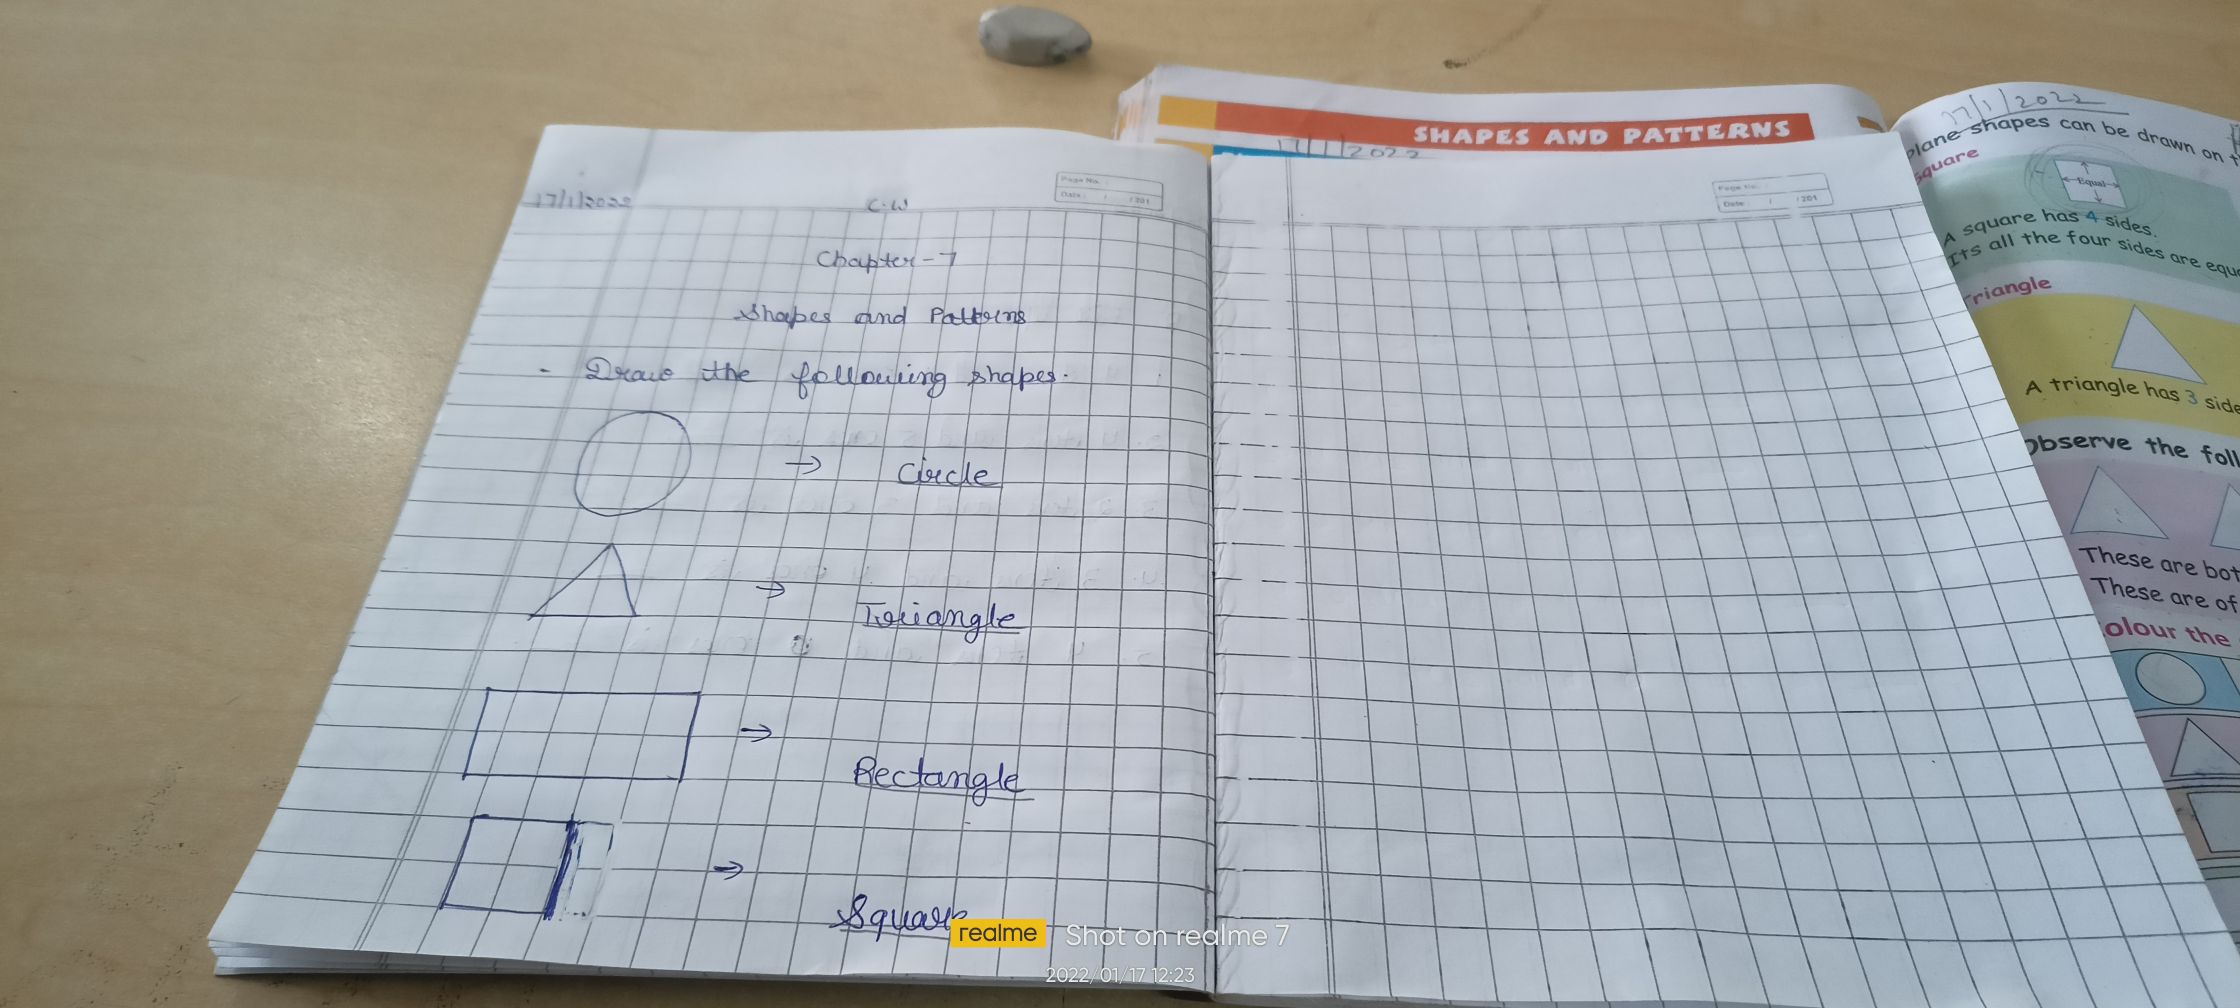 17/1/2022
C.W
Page No. :
Date : / /201
Chapter-7
Shapes and Patterns
- Draw the following shapes.
→ Circle
→ Triangle
→ Rectangle
→ Square
Page No. :
Date : / /201
SHAPES AND PATTERNS
17/1/2022
17/1/2022
plane shapes can be drawn on
square
Equal
A square has 4 sides.
Its all the four sides are equ
riangle
A triangle has 3 side
Observe the foll
These are bot
These are of
olour the
realme
Shot on realme 7
2022/01/17 12:23